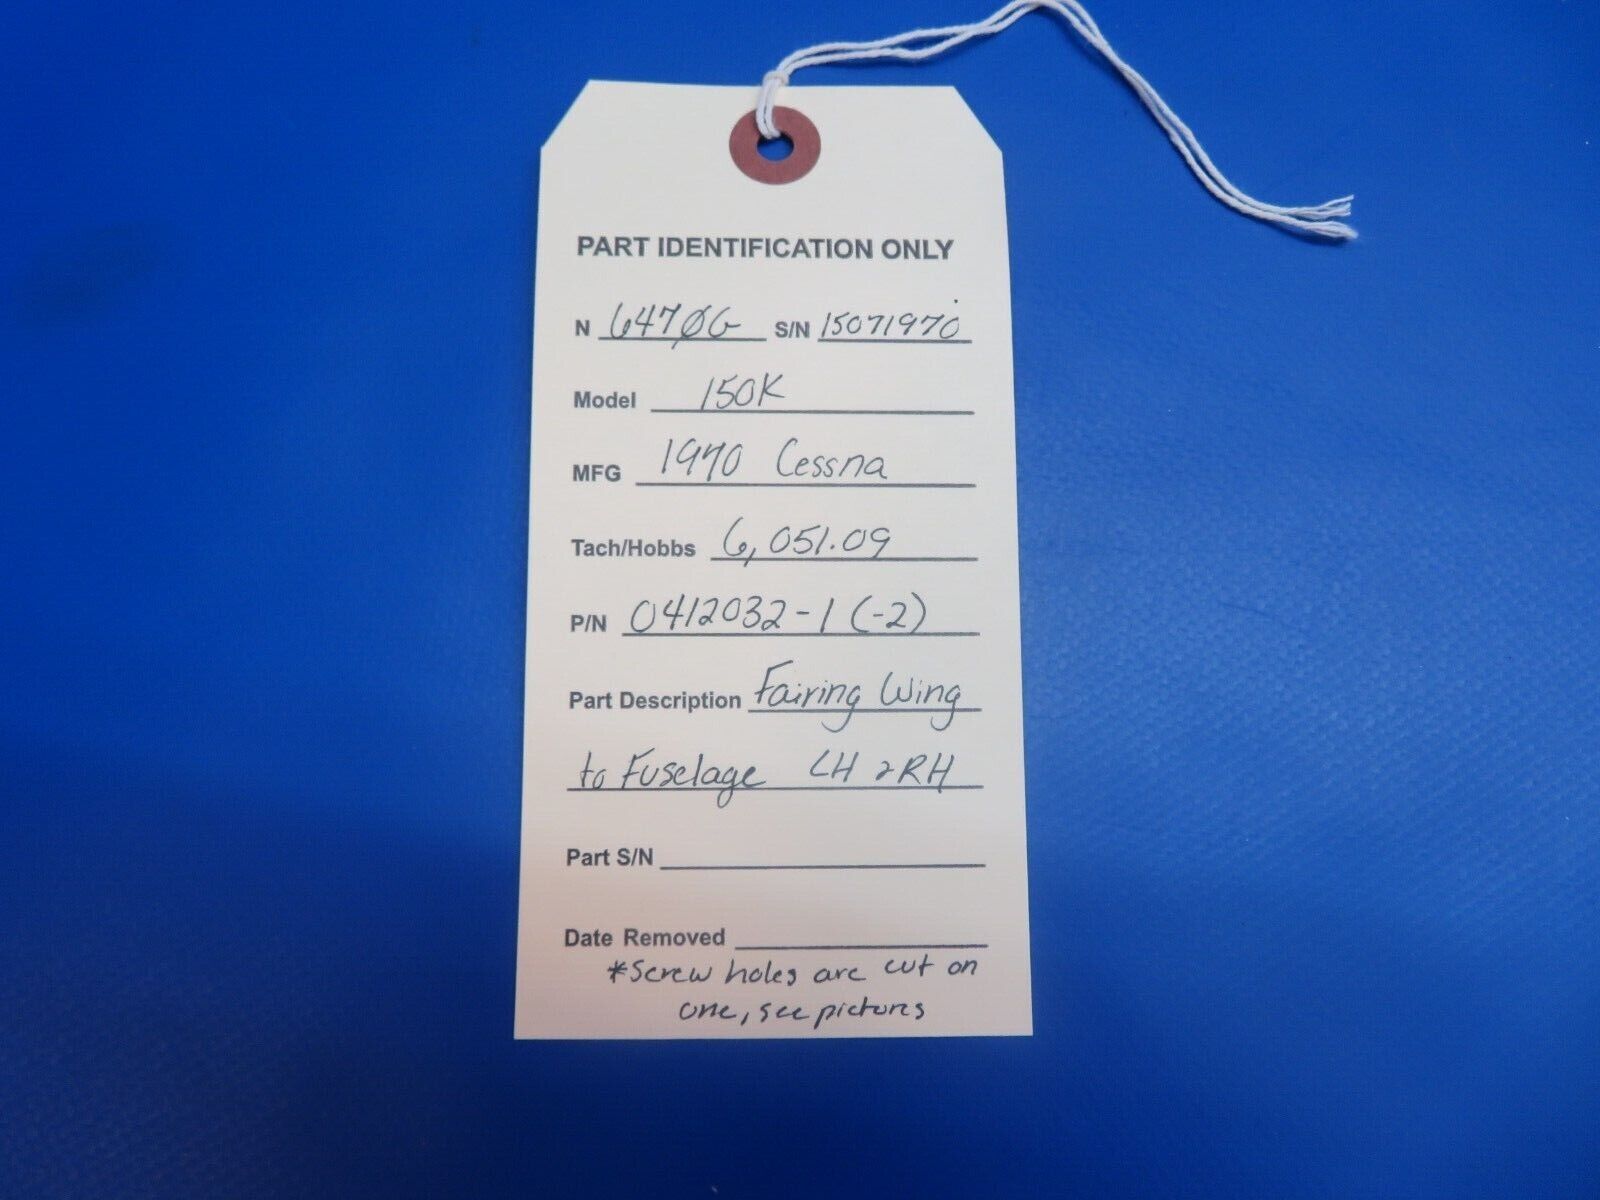 PART IDENTIFICATION ONLY
N 6470G S/N 15071970
Model 150K
MFG 1970 Cessna
Tach/Hobbs 6,051.09
P/N 0412032-1 (-2)
Part Description Fairing Wing
to Fuselage LH & RH
Part S/N
Date Removed
*Screw holes are cut on
one, see pictures